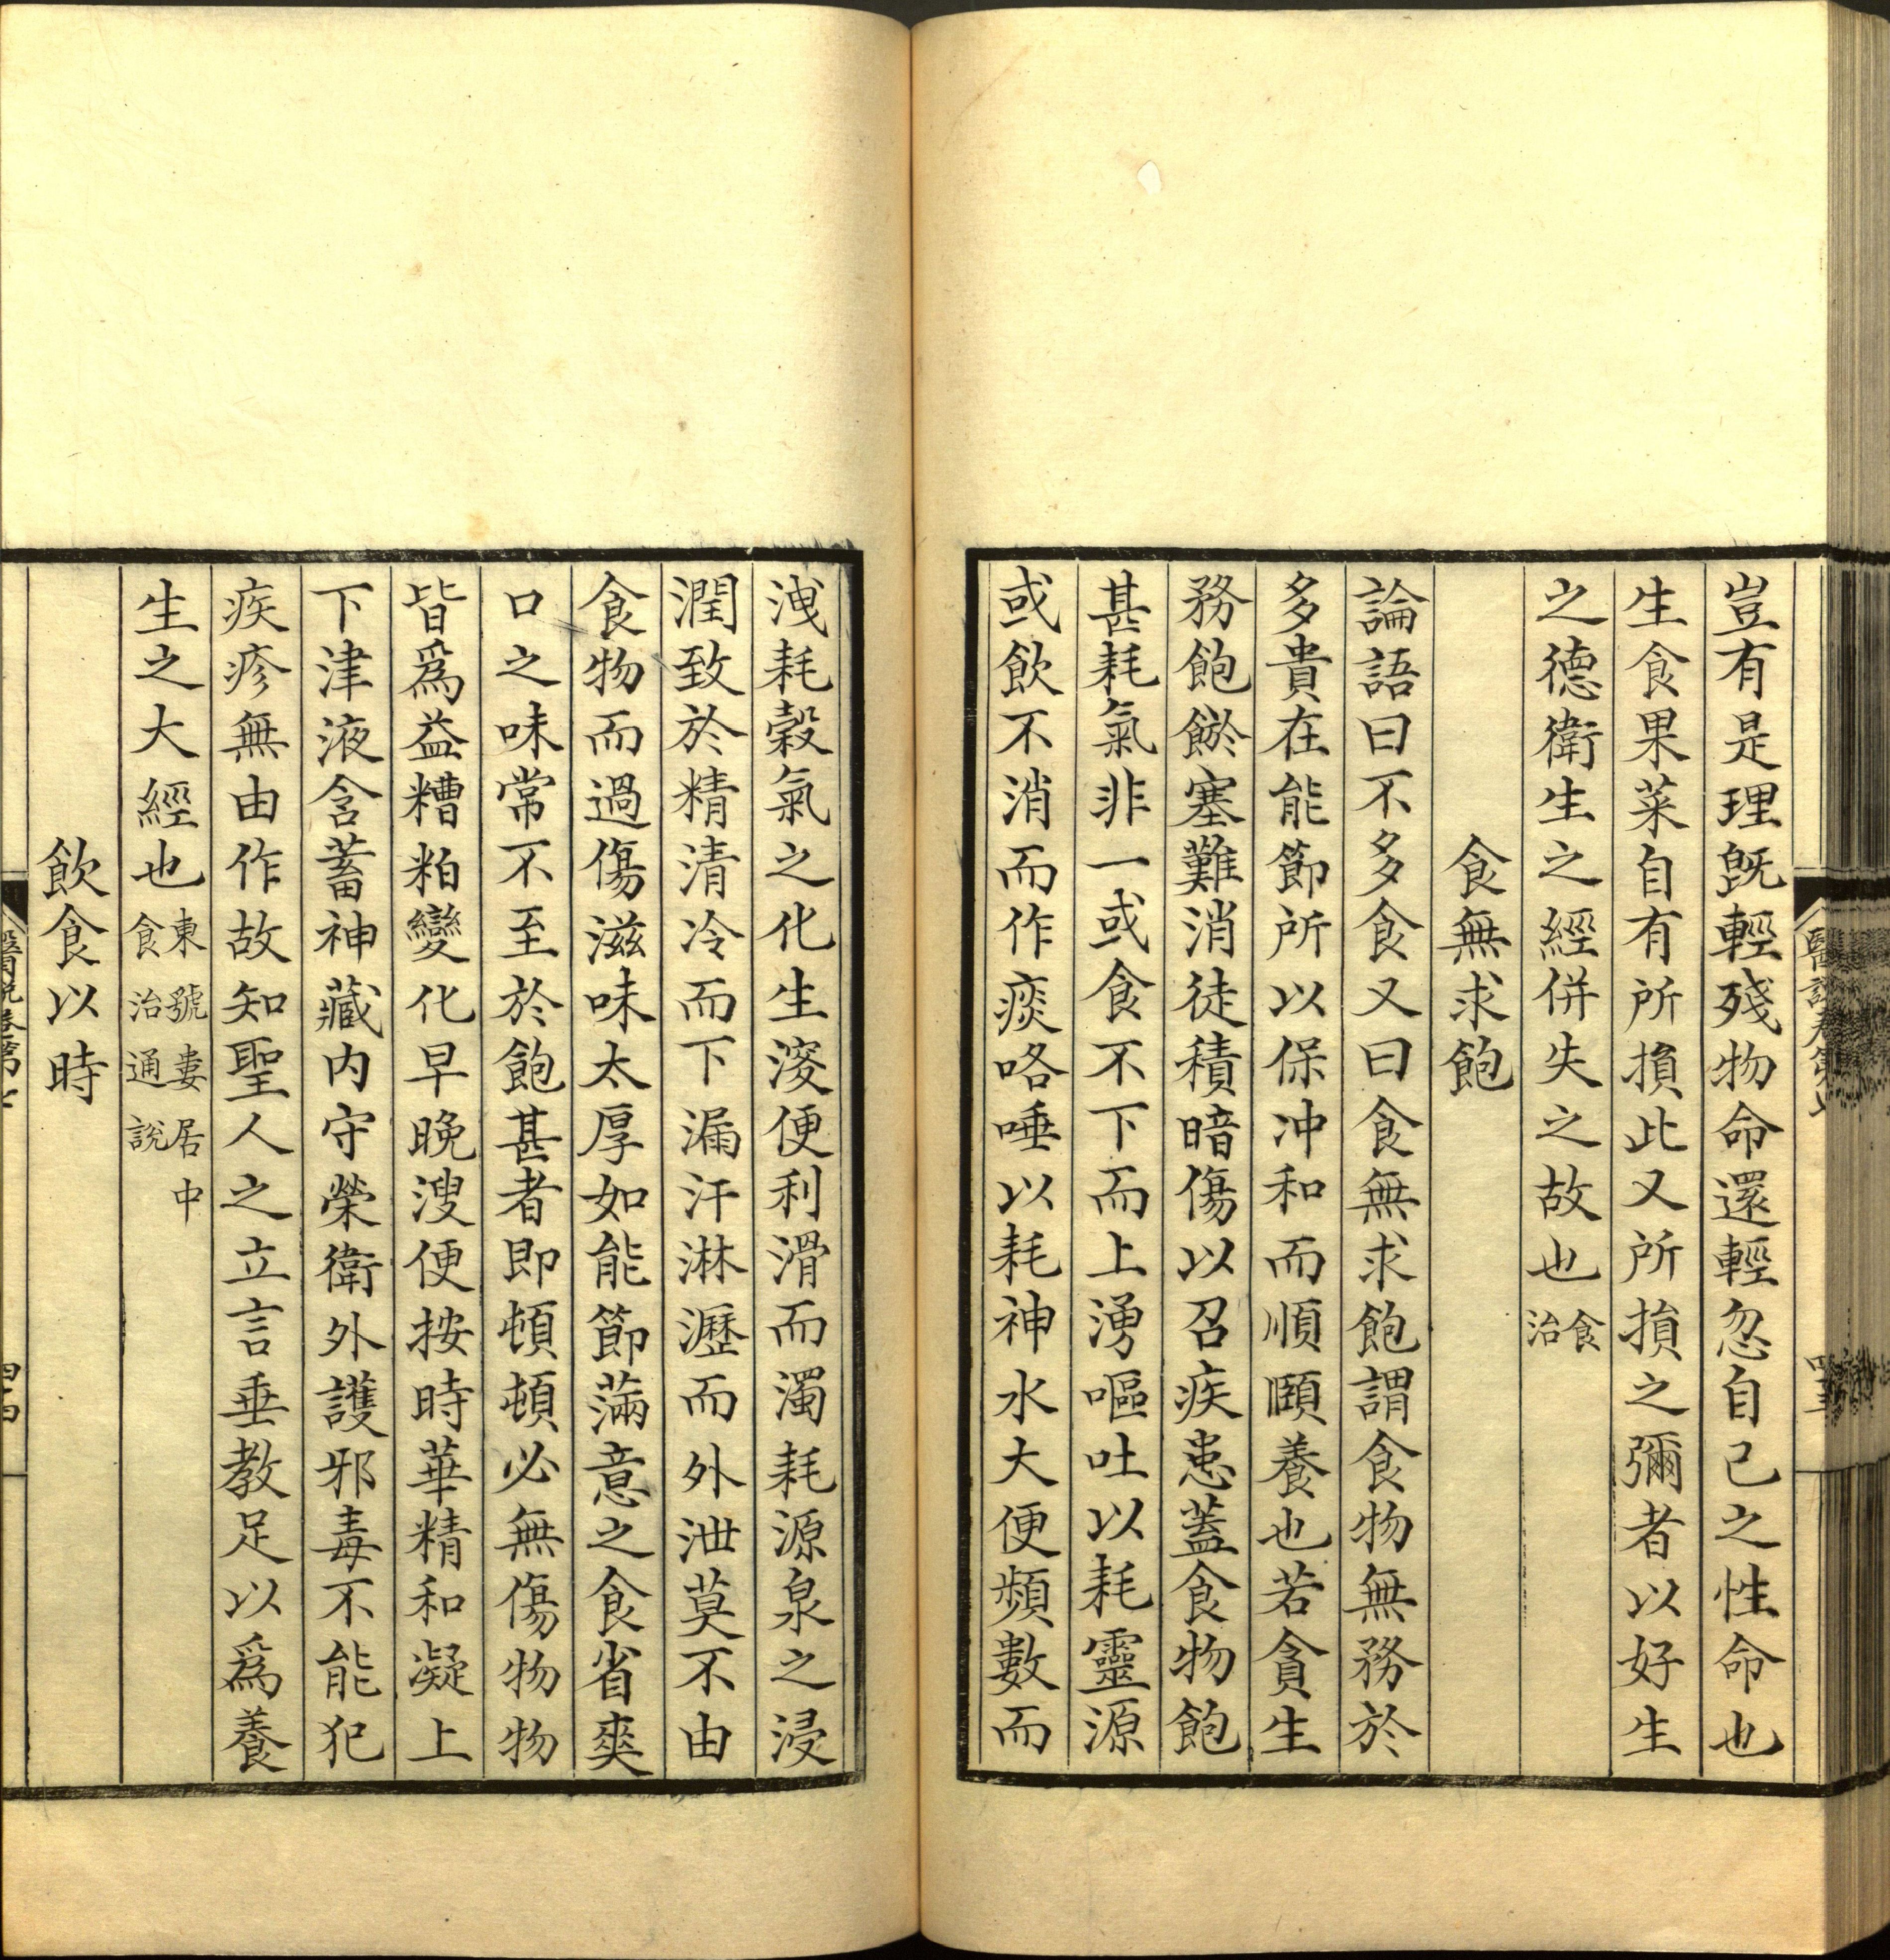 豈有是理旣輕殘物命還輕忽自己之性命也
生食果菜自有所損此又所損之彌者以好生
之德衛生之經併失之故也食治
食無求飽
論語曰不多食又曰食無求飽謂食物無務於
多貴在能節所以保冲和而順頤養也若貪生
務飽飫塞難消徒積暗傷以召疾患蓋食物飽
甚耗氣非一或食不下而上湧嘔吐以耗靈源
或飲不消而作痰咯唾以耗神水大便頻數而
洩耗穀氣之化生溲便利滑而濁耗源泉之浸
潤致於精清冷而下漏汗淋瀝而外泄莫不由
食物而過傷滋味太厚如能節滿意之食省爽
口之味常不至於飽甚者即頓頓必無傷物物
皆爲益糟粕變化早晚溲便按時華精和凝上
下津液含蓄神藏内守榮衛外護邪毒不能犯
疾疹無由作故知聖人之立言垂教足以爲養
生之大經也東號妻居中食治通說
飲食以時
醫說卷第七
四十四